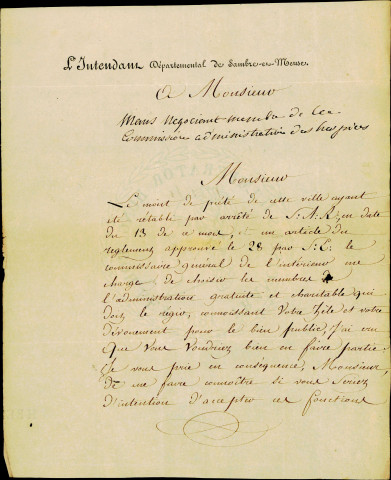 L'Intendant Départemental de Sambre-et-Meuse.
A Monsieur
negociant membre de la
Commission administrative des hospices
Monsieur
Le mont de piété de cette ville ayant
été rétabli par arrêté de S. A. R. en date
du 13 de ce mois, et un article du
reglement approuvé le 28 par S. E. le
commissaire général de l'intérieur me
charge de choisir les membres de
l'administration gratuite et charitable qui
doit le régir, connoissant Votre Zèle et votre
dévouement pour le bien public, J'ai cru
que Vous Voudriez bien en faire partie.
Je vous prie en conséquence, Monsieur,
de me faire connoître si vous seriez
d'intention d'accepter ces fonctions